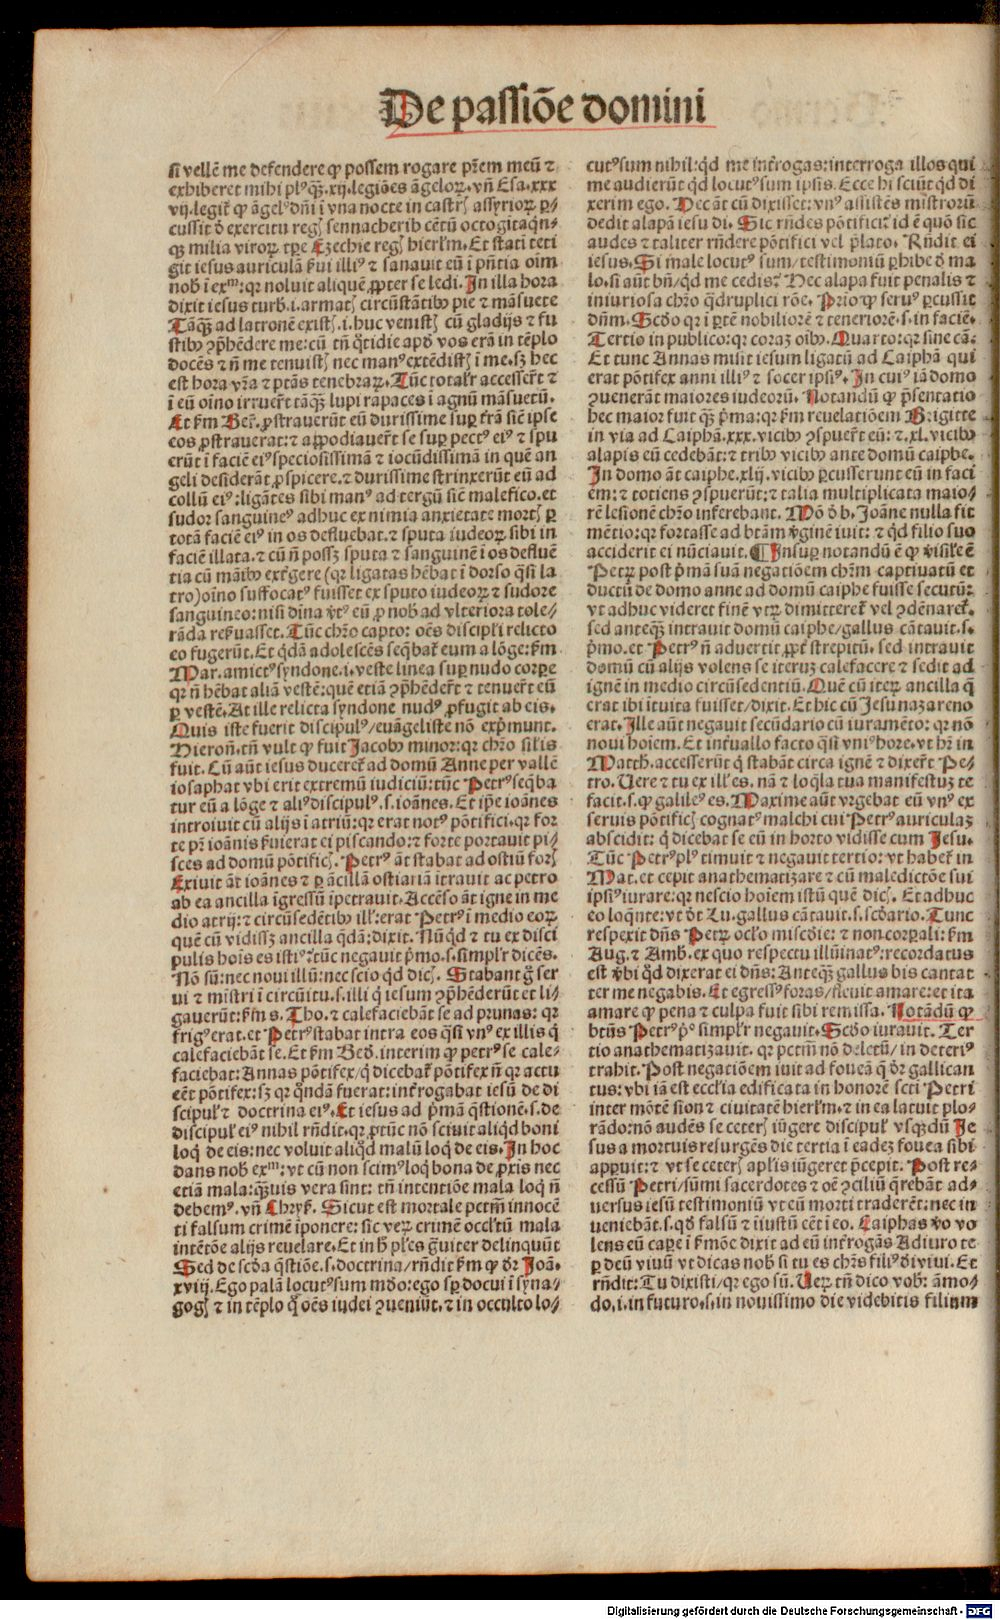 De passiōe domini
si vellē me defendere ꝙ possem rogare pr̄em meū ⁊
exhiberet mihi plꝰqꝫ.xij.legiōes āgeloꝝ.vn̄ Esa.xxx
vij.legit̄ ꝙ āgelꝰ dn̄i ī vna nocte in castrꝭ assyrioꝝ ꝑ-
cussit ð exercitu regꝭ sennacherib cētū octogītaqn̄-
qꝫ milia viroꝝ tꝑe Ezechie regꝭ hierlm̄. Et stati teti
git iesus auriculā ẜui illiꝰ ⁊ sanauit eū ī pn̄tia oīm
nob̄ ī exᵐ: qꝛ noluit aliquē ꝓpter se ledi. In illa hora
dixit iesus turb.i.armatꝭ circūstātibꝰ pie ⁊ māsuete
Tāqꝫ ad latronē existꝭ.i.huc venistꝭ cū gladijs ⁊ fu
stibꝰ ꝯp̄hēdere me: cū tn̄ q̄tidie apð vos erā in tēplo
docēs ⁊ n̄ me tenuistꝭ nec manꝰ extēdistꝭ ī me. sꝫ hec
est hora vr̄a ⁊ ptās tenebraꝝ. Tūc totalr̄ accesser̄t ⁊
ī eū oīno irruer̄t tāqꝫ lupi rapaces ī agnū māsuetū.
Et ẜm Ber̄. ꝓstrauerūt eū durissime suꝑ tr̄ā siē ipse
eos ꝓstrauerat: ⁊ appodiauer̄t se suꝑ pectꝰ eiꝰ ⁊ spu
erūt ī faciē eiꝰ speciosissimā ⁊ iocūdissimā in quē an
geli desiderāt ꝓspicere. ⁊ durissime strinxerūt eū ad
collū eiꝰ: ligātes sibi manꝰ ad tergū sic̄ malefico. et
sudor sanguineꝰ adhuc ex nimia anxietate mortꝭ ꝑ
totā faciē eiꝰ in os defluebat. ⁊ sputa iudeoꝝ sibi in
faciē illata. ⁊ cū n̄ possꝫ sputa ⁊ sanguinē ī os defluē
tia cū māibꝰ ext̄gere (qꝛ ligatas hēbat ī dorso q̄si la
tro) oīno suffocatꝰ fuisset ex sputo iudeoꝝ ⁊ sudore
sanguineo: nisi dīna v̄tꝰ eū ꝓ nob̄ ad vlteriora tole-
rāda reẜuasset. Tūc chr̄o capto: oēs discipl̄i relicto
eo fugerūt. Et q̄dā adolescēs seq̄bat̄ eum a lōge: ẜm
Mar. amictꝰ syndone.i.veste linea suꝑ nudo corꝑe
qꝛ n̄ hēbat aliā vestē: quē etiā ꝯp̄hēder̄t ⁊ tenuer̄t eū
ꝑ vestē. At ille relicta syndone nudꝰ ꝓfugit ab eis.
Quis iste fuerit discipulꝰ/ euāgeliste nō exp̄munt.
Hieron̄. tn̄ vult ꝙ fuit Jacobꝰ minor: qꝛ chr̄o sil̄is
fuit. Cū aūt iesus duceret̄ ad domū Anne per vallē
iosaphat vbi erit extremū iudiciū: tūc Petrꝰ seq̄ba
tur eū a lōge ⁊ aliꝰ discipulꝰ.s.ioānes. Et ip̄e ioānes
introiuit cū alijs ī atriū: qꝛ erat notꝰ pōtifici. qꝛ for
te pr̄ ioānis ẜuierat ei piscando: ⁊ forte portauit pi-
sces ad domū pōtificꝭ. Petrꝰ āt stabat ad ostiū forꝭ
Exiuit āt ioānes ⁊ ꝑ ācillā ostiariā ītrauit ac petro
ab ea ancilla igressū īpetrauit. Accēso āt igne in me
dio atrij: ⁊ circūsedētibꝰ ill̄: erat Petrꝰ ī medio eoꝝ
quē cū vidissꝫ ancilla q̄dā: dixit. Nūqd ⁊ tu ex disci
pulis hoīs es istiꝰ? tūc negauit p̄mo.s.simplr̄ dicēs.
Nō sū: nec noui illū: nec scio qd̄ dicꝭ. Stabant g̊ ser
ui ⁊ mīstri ī circūitu.s.illi q̄ iesum ꝯp̄hēderūt et li-
gauerūt: ẜm s. Tho. ⁊ calefaciebāt se ad prunas: qꝛ
frigꝰ erat. et Petrꝰ stabat intra eos q̄si vnꝰ ex illis q̄
calefaciebāt se. Et ẜm Beð. interim ꝙ petrꝰ se cale-
faciebat: Annas pōtifex/ q̄ dicebat̄ pōtifex n̄ qꝛ actu
eēt pōtifex: sꝫ qꝛ q̄ndā fuerat: int̄rogabat iesū de di
scipul̄ ⁊ doctrina eiꝰ. Et iesus ad p̄mā q̄stionē.s.de
discipul̄ eiꝰ nihil rn̄dit. qꝛ ꝓtūc nō sciuit aliqd boni
loq̄ de eis: nec voluit aliqd malū loq̄ de eis. In hoc
dans nob̄ exᵐ: vt cū non scimꝰ loq̄ bona de ꝓxis nec
etiā mala: qꝫuis vera sint: tn̄ intentiōe mala loq̄ n̄
debemꝰ. vn̄ Chryẜ. Sicut est mortale petm̄ innocē
ti falsum crimē īponere: sic veꝝ crimē occltū mala
intētōe alijs reuelare. Et in h̄ pl̄es g̊uiter delinquūt
Sed de scða q̄stiōe.s.doctrina/ rn̄dit ẜm ꝙ ðr Joā.
xviij. Ego palā locutꝰ sum mðo: ego sꝑ docui ī syna-
gogꝭ ⁊ in tēplo q̊ oēs iudei ꝯueniūt. ⁊ in occulto lo-
cutꝰ sum nihil: qd̄ me int̄rogas: interroga illos qui
me audierūt qd̄ locutꝰ sum ipsis. Ecce hi sciūt qd̄ di
xerim ego. Hec āt cū dixisset: vnꝰ assistēs mīstrorū
dedit alapā iesu di. Sic rn̄des pōtifici? id ē quō sic
audes ⁊ taliter rn̄dere pōtifici vel p̄lato. Rn̄dit ei
iesus. Si male locutꝰ sum/ testimoniū ꝑhibe ð ma
lo. si aūt bn̄/ qd̄ me cedis? Hec alapa fuit penalis ⁊
iniuriosa chr̄o q̄druplici rōe. Prīo ꝙ seruꝰ ꝑcussit
dn̄m. Scðo qꝛ ī ꝑtē nobiliorē ⁊ teneriorē.s.in faciē.
Tertio in publico: qꝛ coraꝫ oībꝰ. Quarto: qꝛ sine cā.
Et tunc Annas misit iesum ligatū ad Caiphā qui
erat pōtifex anni illiꝰ ⁊ socer ipsiꝰ. In cuiꝰ iā domo
ꝯuenerāt maiores iudeorū. Notandū ꝙ p̄sentatio
hec maior fuit qꝫ p̄ma: qꝛ ẜm reuelatiōem Brigitte
in via ad Caiphā.xxx.vicibꝰ ꝯspuer̄t eū: ⁊.xl.vicibꝰ
alapis eū cedebāt: ⁊ tribꝰ vicibꝰ ante domū caiphe.
In domo āt caiphe.xlij.vicibꝰ ꝑcusserunt eū in faci
em: ⁊ totiens ꝯspuerūt: ⁊ talia multiplicata maio-
rē lesionē chr̄o inferebant. Mō ð b. Joāne nulla fit
mētio: qꝛ fortasse ad btām v̄ginē iuit: ⁊ qd̄ filio suo
acciderit ei nūciauit. ¶ Insuꝑ notandū ē ꝙ v̄isile ē
Petꝝ post p̄mā suā negatiōem chr̄m captiuatū et
ductū de domo anne ad domū caiphe fuisse secutū:
vt adhuc videret finē vtꝝ dimitteret̄ vel ꝯdēnaret̄.
sed anteqꝫ intrauit domū caiphe/ gallus cātauit.s.
p̄mo. et Petrꝰ n̄ aduertit ꝓpt̄ strepitū. sed intrauit
domū cū alijs volens se iteruꝫ calefacere ⁊ sedit ad
ignē in medio circūsedentiū. Quē cū iteꝝ ancilla q̄
erat ibi ītuita fuisset/ dixit. Et hic cū Jesu nazareno
erat. Ille aūt negauit secūdario cū iuramēto: qꝛ nō
noui hoīem. Et int̄uallo facto q̄si vniꝰ hore. vt hr̄ in
Matth. accesserūt q̄ stabāt circa ignē ⁊ dixer̄t Pe-
tro. Uere ⁊ tu ex ill̄ es. nā ⁊ loq̄la tua manifestuꝫ te
facit.s.ꝙ galileꝰ es. Maxime aūt vrgebat eū vnꝰ ex
seruis pōtificꝭ cognatꝰ malchi cui Petrꝰ auriculaꝫ
abscidit: q̄ dicebat se eū in horto vidisse cum Jesu.
Tūc Petrꝰ plꝰ timuit ⁊ negauit tertio: vt habet̄ in
Mat. et cepit anathematizare ⁊ cū maledictōe sui
ipsiꝰ iurare: qꝛ nescio hoīem istū quē dicꝭ. Et adhuc
eo loq̄nte: vt ðr Lu. gallus cātauit.s.scðario. Tunc
respexit dn̄s Petꝝ oclo miscðie: ⁊ non corꝑali: ẜm
Aug. ⁊ Amb. ex quo respectu illūinatꝰ: recordatus
est v̄bi qd̄ dixerat ei dn̄s: Anteqꝫ gallus bis cantat
ter me negabis. Et egressꝰ foras/ fleuit amare: et ita
amare ꝙ pena ⁊ culpa fuit sibi remissa. Notādū ꝙ
btūs Petrꝰ p̊ simplr̄ negauit. Scðo iurauit. Ter
tio anathematizauit. qꝛ petm̄ nō deletū/ in deteriꝰ
trahit. Post negatiōem iuit ad foueā q̄ ðr gallican
tus: vbi iā est ecclīa edificata in honorē scti Petri
inter mōtē sion ⁊ ciuitatē hierlm̄. ⁊ in ea latuit plo-
rādo: nō audēs se ceterꝭ iūgere discipul̄ vsqꝫdū Je
sus a mortuis resurgēs die tertia ī eadeꝫ fouea sibi
apparuit: ⁊ vt se ceterꝭ aplis iūgeret p̄cepit. Post re-
cessū Petri/ sūmi sacerdotes ⁊ oē ꝯciliū q̄rebāt ad-
uersus iesū testimoniū vt eū morti traderēt: nec in
ueniebāt.s.qð falsū ⁊ iiustū cēt ī eo. Caiphas v̊o vo
lens eū caꝑe ī ẜmōe dixit ad eū int̄rogās Adiuro te
ꝑ deū viuū vt dicas nob̄ si tu es chr̄s filiꝰ ði viui. Et
rn̄dit: Tu dixisti/ qꝛ ego sū. Ueꝝ tn̄ dico vob̄: āmo-
do.i.in futuro.s.in nouissimo die videbitis filium
Digitalisierung gefördert durch die Deutsche Forschungsgemeinschaft - DFG